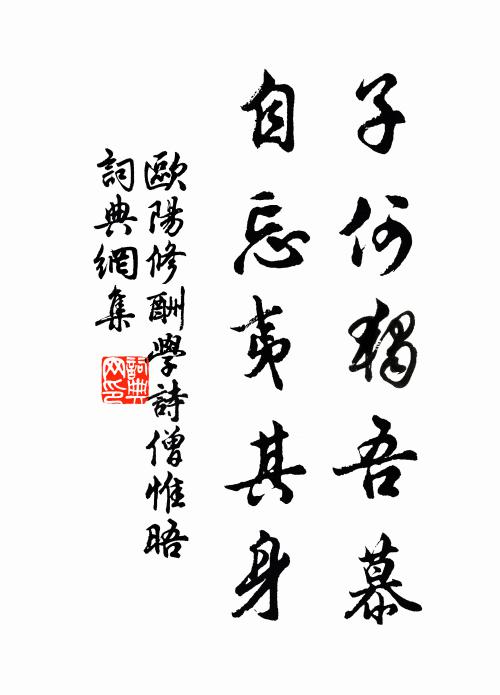 子何獨吾慕
自忘夷其身
歐陽修酬學詩僧惟晤
詞典網集
詞典
网印